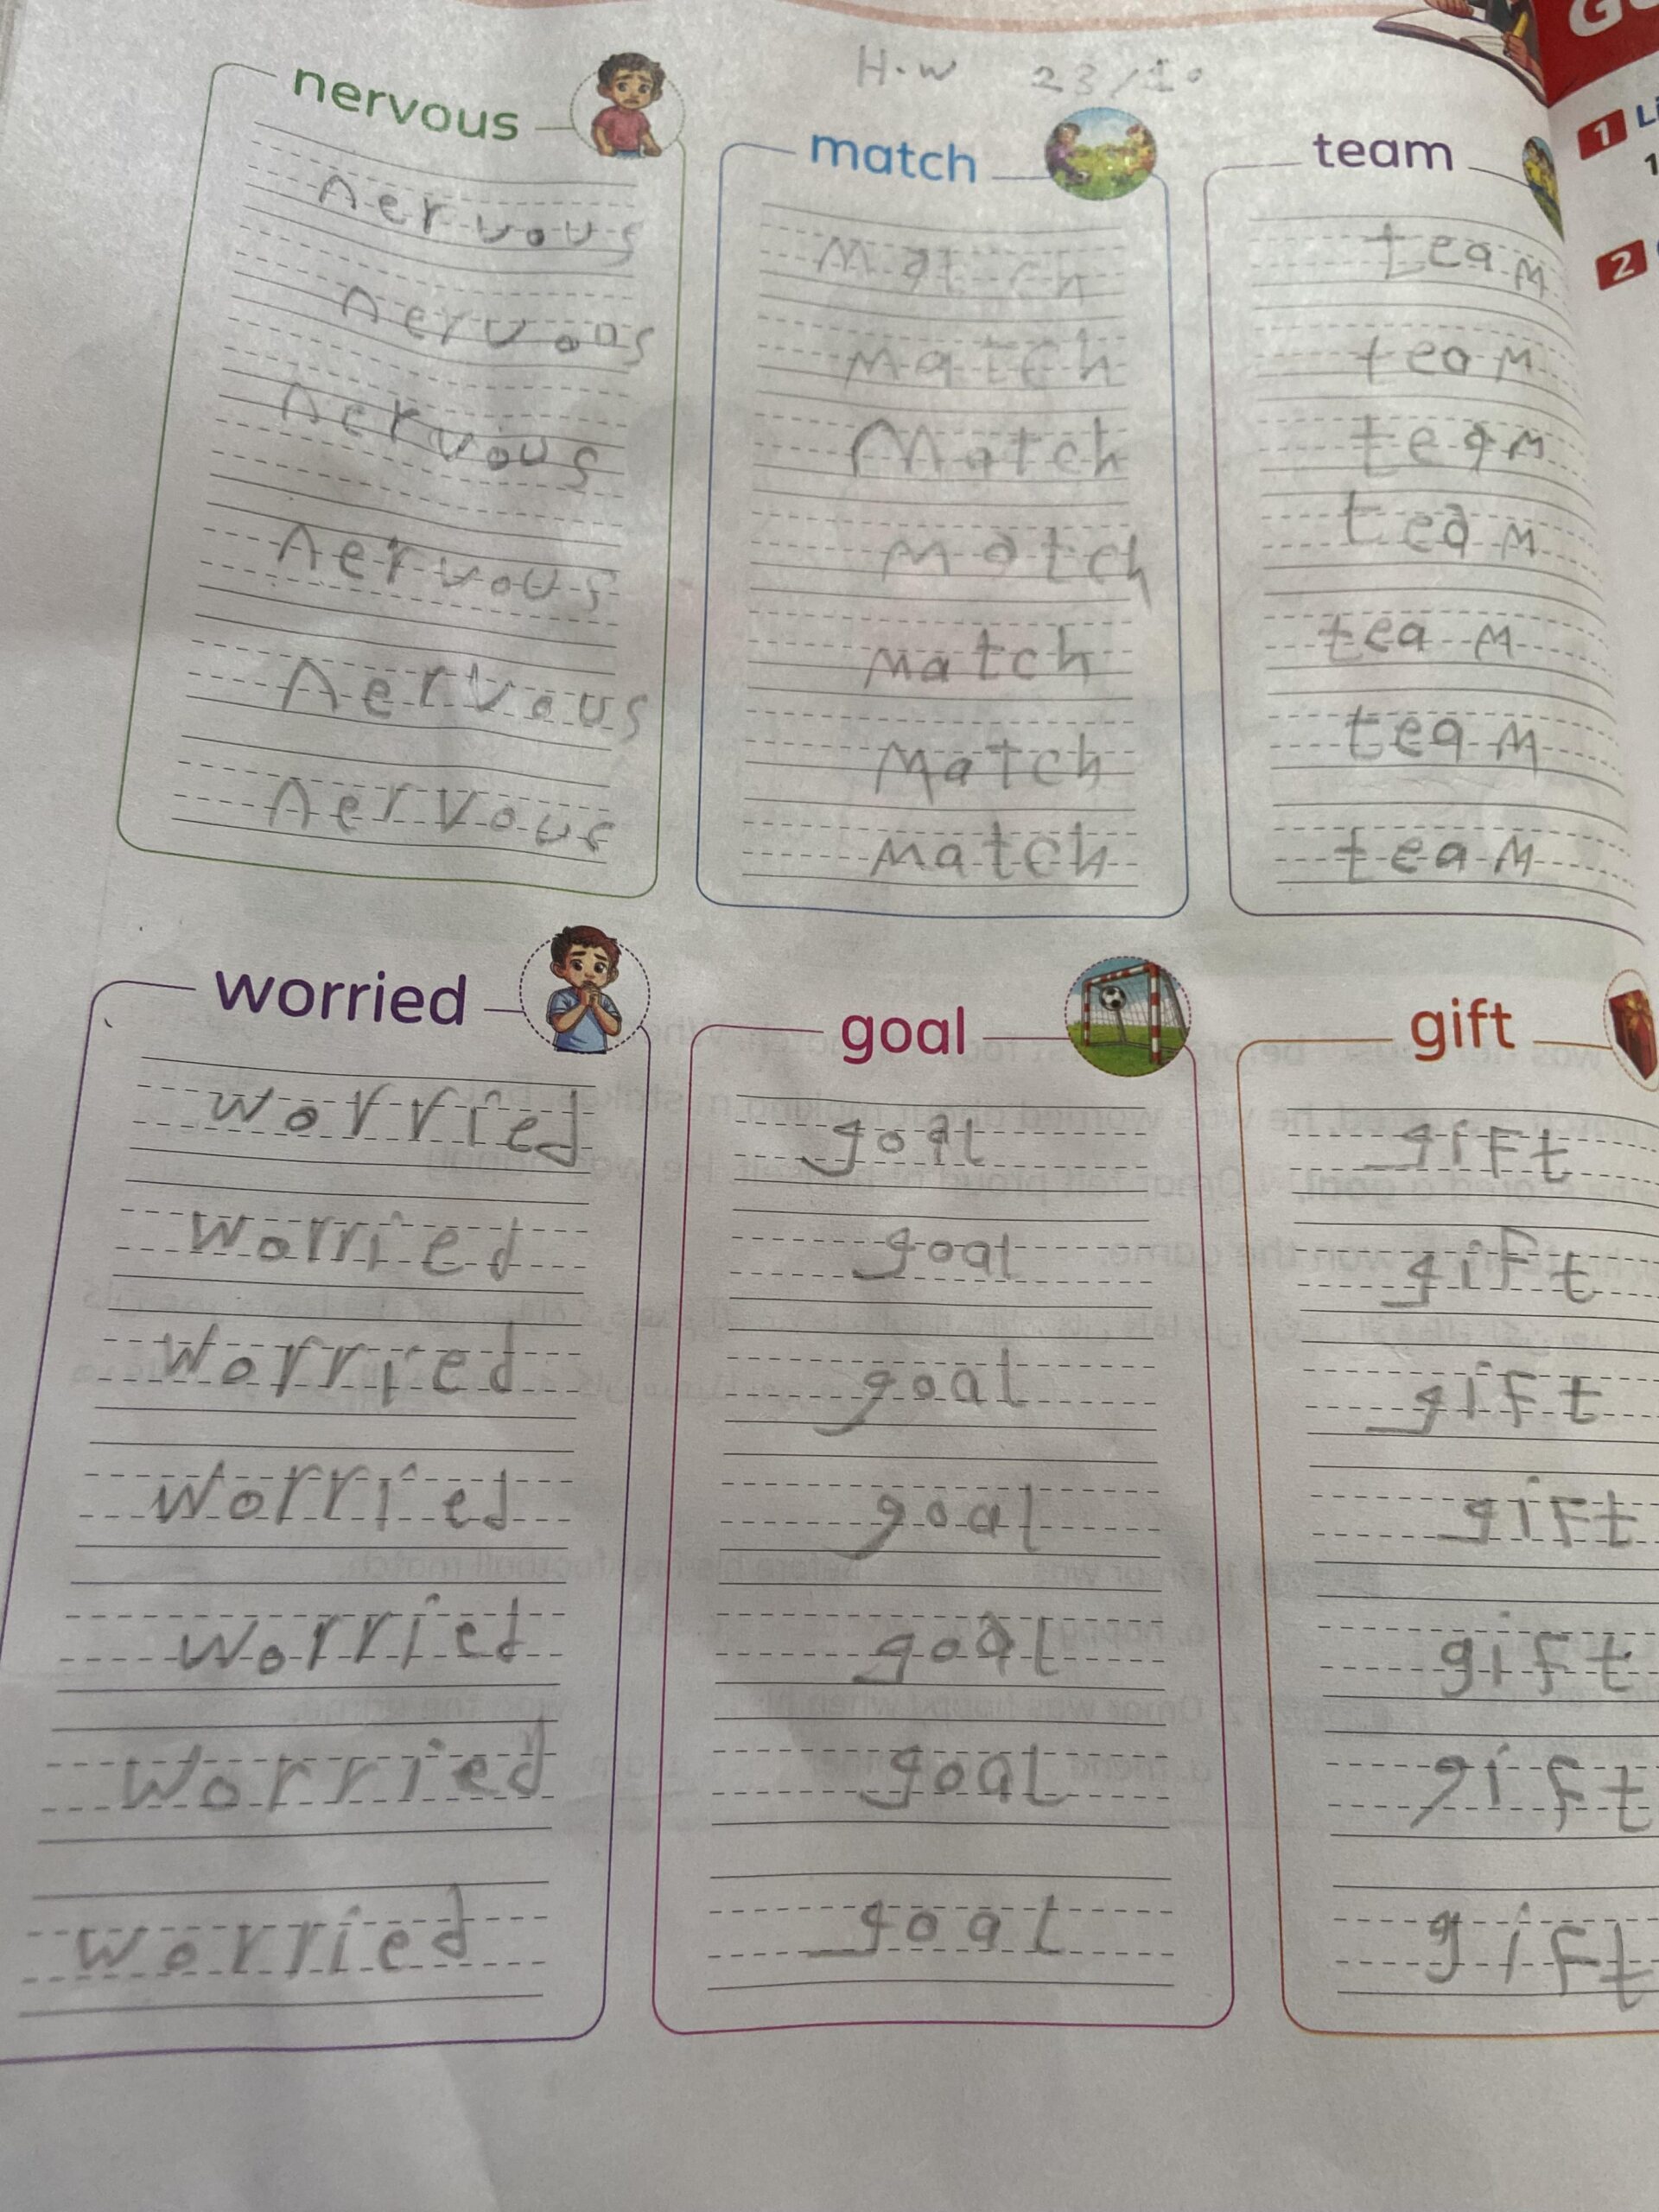 H.w 23/10
nervous
nervous
nervous
nervous
nervous
nervous
nervous
match
match
match
Match
match
match
match
match
team
team
team
team
team
team
team
team
worried
worried
worried
worried
worried
worried
worried
worried
goal
goal
goal
goal
goal
goal
goal
goal
gift
gift
gift
gift
gift
gift
gift
gift
1
2